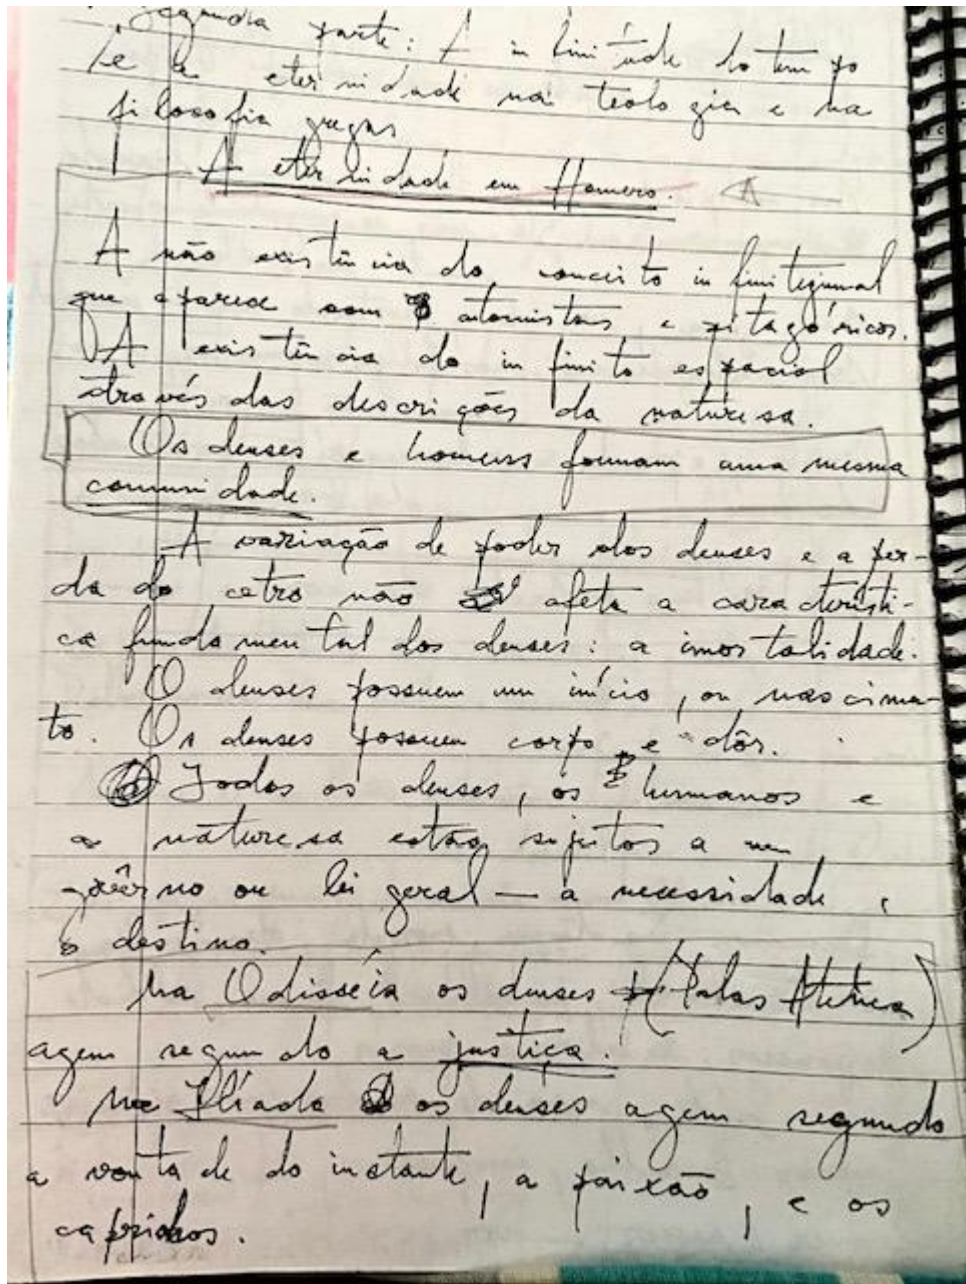 Segunda parte: A infinitude do tempo
e a eternidade na teologia e na
filosofia gregas
A eternidade em Homero.
A não existência do conceito infinitesimal
que aparece com atomistas e pitagóricos.
A existência do infinito espacial
através das descrições da naturesa.
Os deuses e homens formam uma mesma
comunidade.
A variação de poder dos deuses e a per-
da do cetro não afeta a característi-
ca fundamental dos deuses: a imortalidade.
O deuses possuem um início, ou nascimen-
to. Os deuses possuem corpo e dôr.
Todos os deuses, os humanos e
a naturesa estão sujeitos a um
govêrno ou lei geral — a necessidade,
o destino.
Na Odisséia os deuses (Palas Atenea)
agem segundo a justiça.
Na Ilíada os deuses agem segundo
a vontade do instante, a paixão, e os
caprichos.